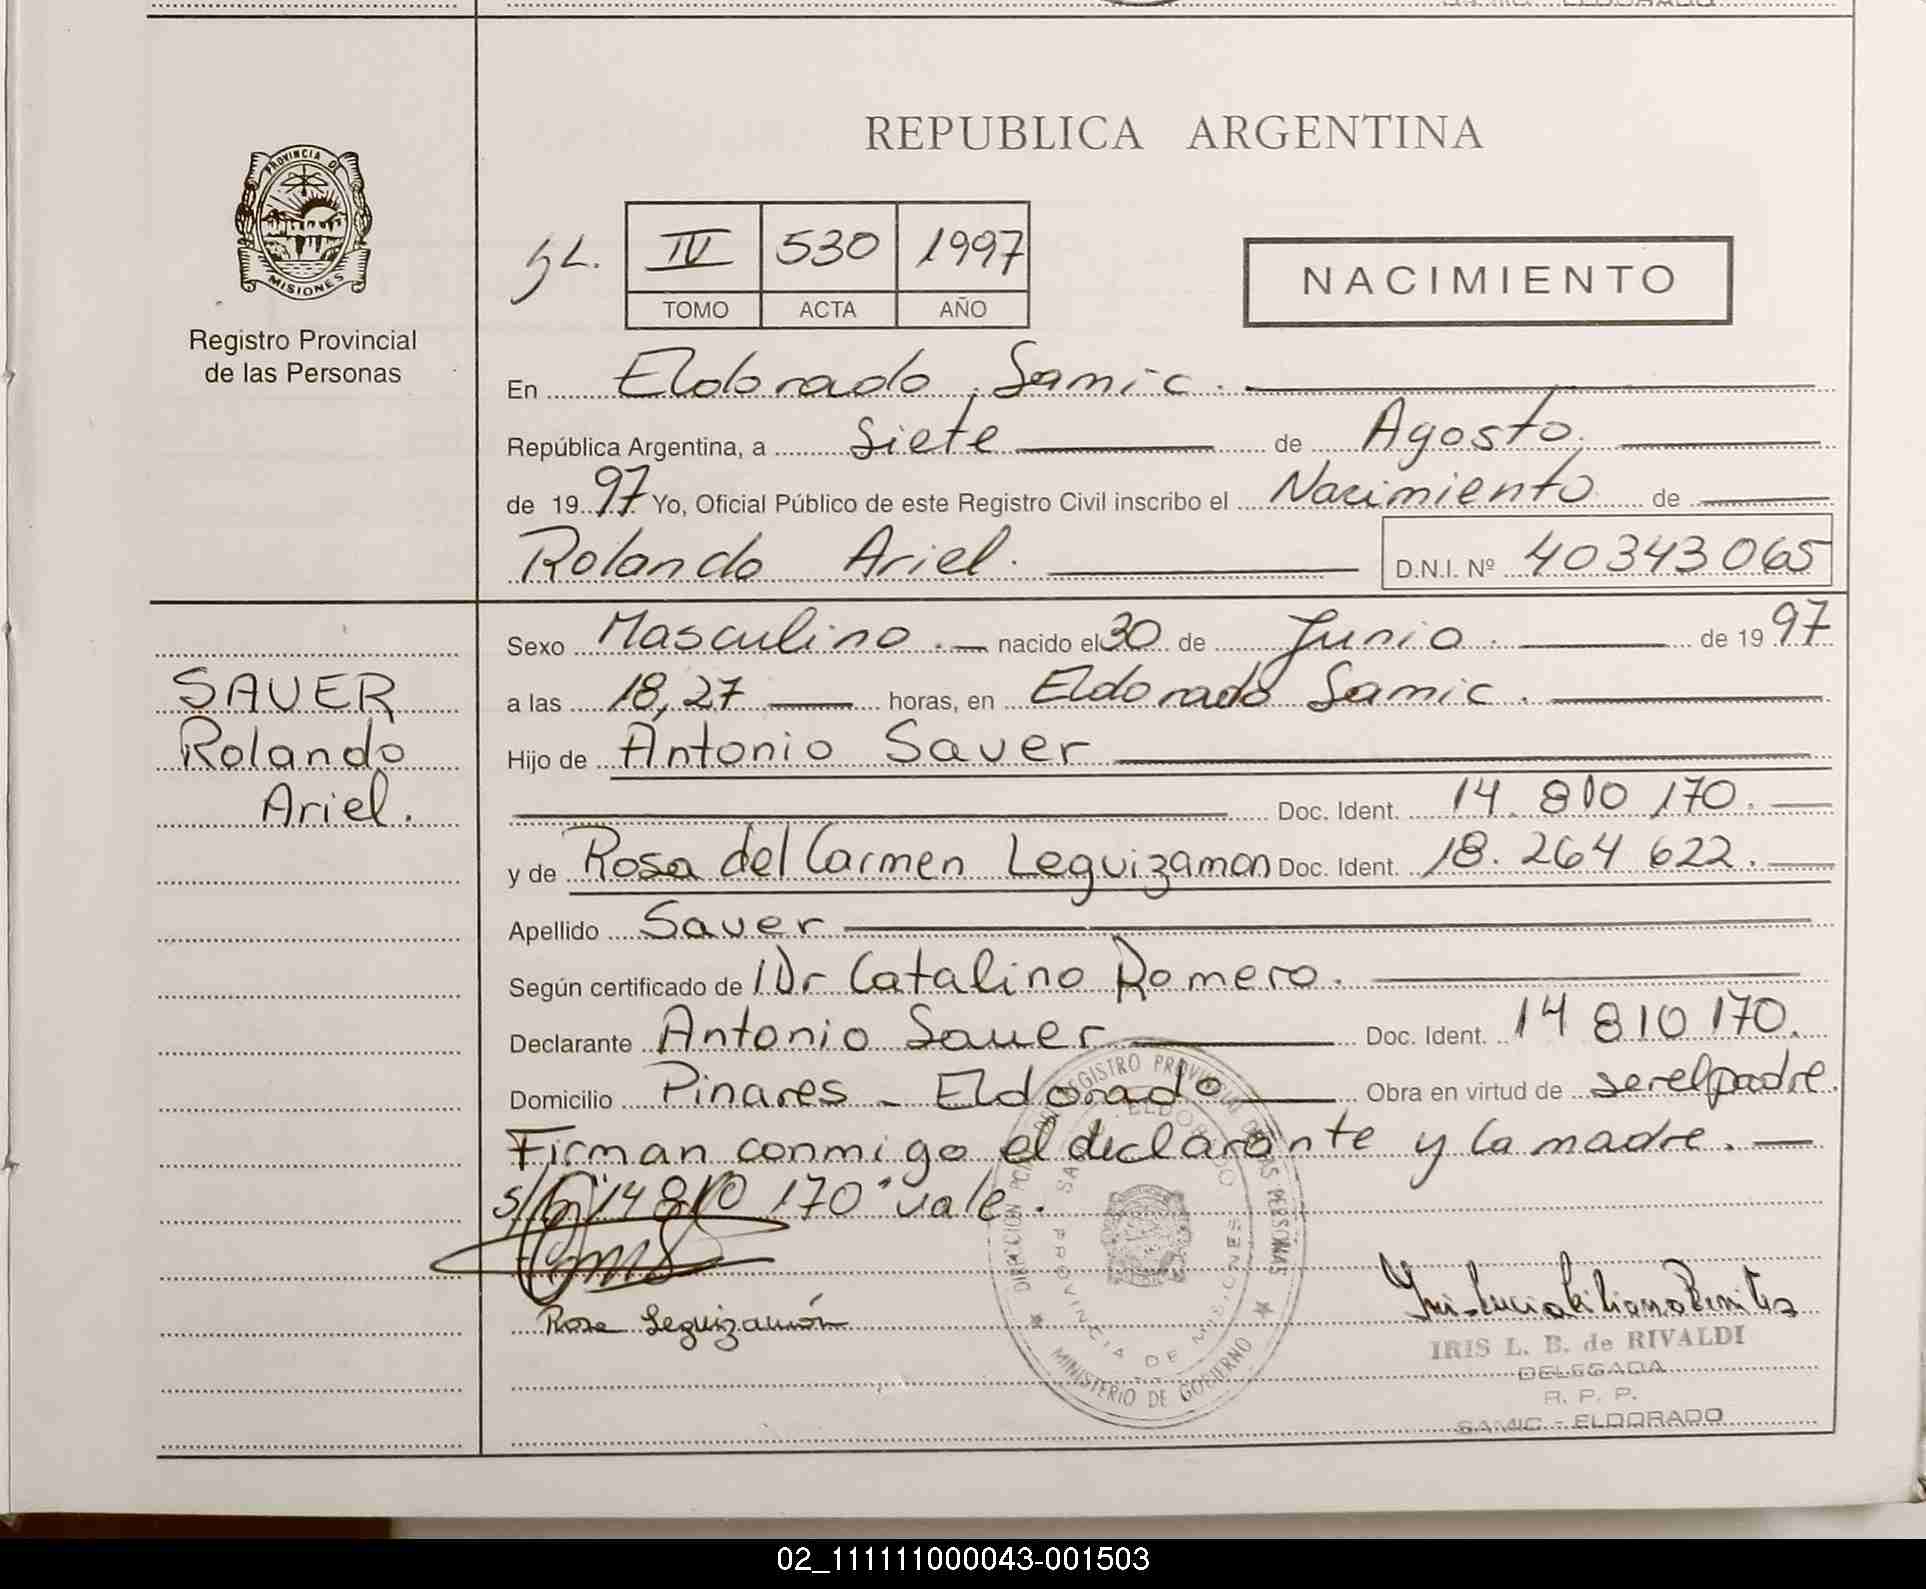 REPUBLICA ARGENTINA
PROVINCIA DE
MISIONES
Registro Provincial
de las Personas
IV 530 1997
TOMO ACTA AÑO
NACIMIENTO
En Eldorado, Samic.
República Argentina, a Siete de Agosto.
de 1997 Yo, Oficial Público de este Registro Civil inscribo el Nacimiento de
Rolando Ariel. D.N.I. Nº 40343065
SAUER
Rolando
Ariel.
Sexo Masculino. nacido el 30 de Junio. de 1997
a las 18,27 horas, en Eldorado Samic.
Hijo de Antonio Sauer
Doc. Ident. 14.810 170.
y de Rosa del Carmen Leguizamon Doc. Ident. 18.264 622.
Apellido Sauer
Según certificado de Dr Catalino Romero.
Declarante Antonio Sauer Doc. Ident. 14 810 170.
Domicilio Pinares - Eldorado Obra en virtud de ser el padre.
Firman conmigo el declarante y la madre.
"14 810 170" vale.
Rosa Leguizamón
IRIS L. B. de RIVALDI
DELEGADA
R. P. P.
SAMIC - ELDORADO
MINISTERIO DE GOBIERNO
PROVINCIA DE MISIONES
02_111111000043-001503